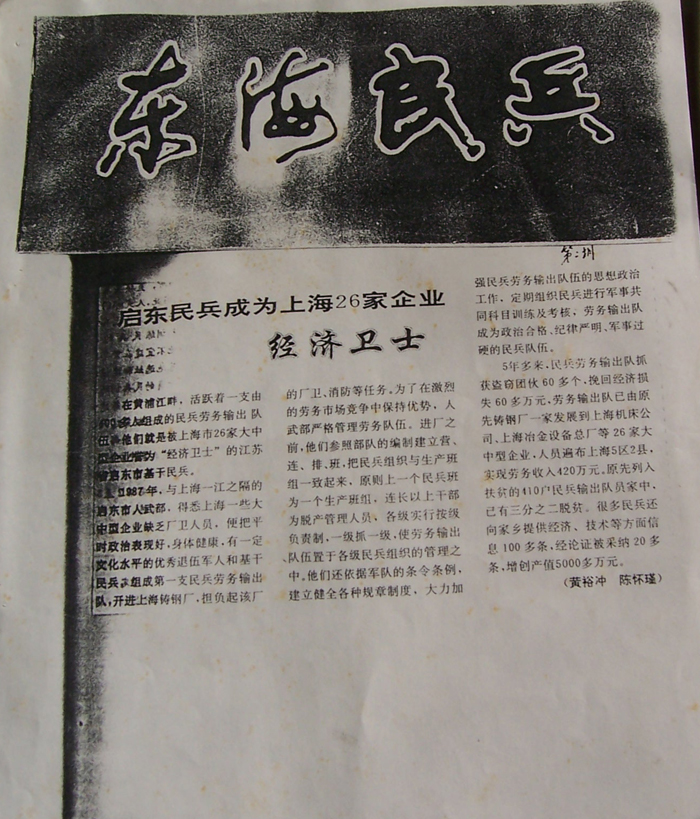 东海民兵
第二圳
启东民兵成为上海26家企业
经济卫士
在黄浦江畔，活跃着一支由
人组成的民兵劳务输出队
他们就是被上海市26家大中
企业誉为“经济卫士”的江苏
省启东市基干民兵。
1987年，与上海一江之隔的
启东市人武部，得悉上海一些大
中型企业缺乏厂卫人员，便把平
时政治表现好，身体健康，有一定
文化水平的优秀退伍军人和基干
民兵，组成第一支民兵劳务输出
队，开进上海铸钢厂，担负起该厂
的厂卫、消防等任务。为了在激烈
的劳务市场竞争中保持优势，人
武部严格管理劳务队伍。进厂之
前，他们参照部队的编制建立营、
连、排、班，把民兵组织与生产班
组一致起来，原则上一个民兵班
为一个生产班组，连长以上干部
为脱产管理人员，各级实行按级
负责制，一级抓一级，使劳务输出
队伍置于各级民兵组织的管理之
中。他们还依据军队的条令条例，
建立健全各种规章制度，大力加
强民兵劳务输出队伍的思想政治
工作，定期组织民兵进行军事共
同科目训练及考核，劳务输出队
成为政治合格、纪律严明、军事过
硬的民兵队伍。
5年多来，民兵劳务输出队抓
获盗窃团伙60多个，挽回经济损
失60多万元，劳务输出队已由原
先铸钢厂一家发展到上海机床公
司、上海冶金设备总厂等26家大
中型企业，人员遍布上海5区2县，
实现劳务收入420万元，原先列入
扶贫的410户民兵输出队员家中，
已有三分之二脱贫。很多民兵还
向家乡提供经济、技术等方面信
息100多条，经论证被采纳20多
条，增创产值5000多万元。
（黄裕冲 陈怀瑾）